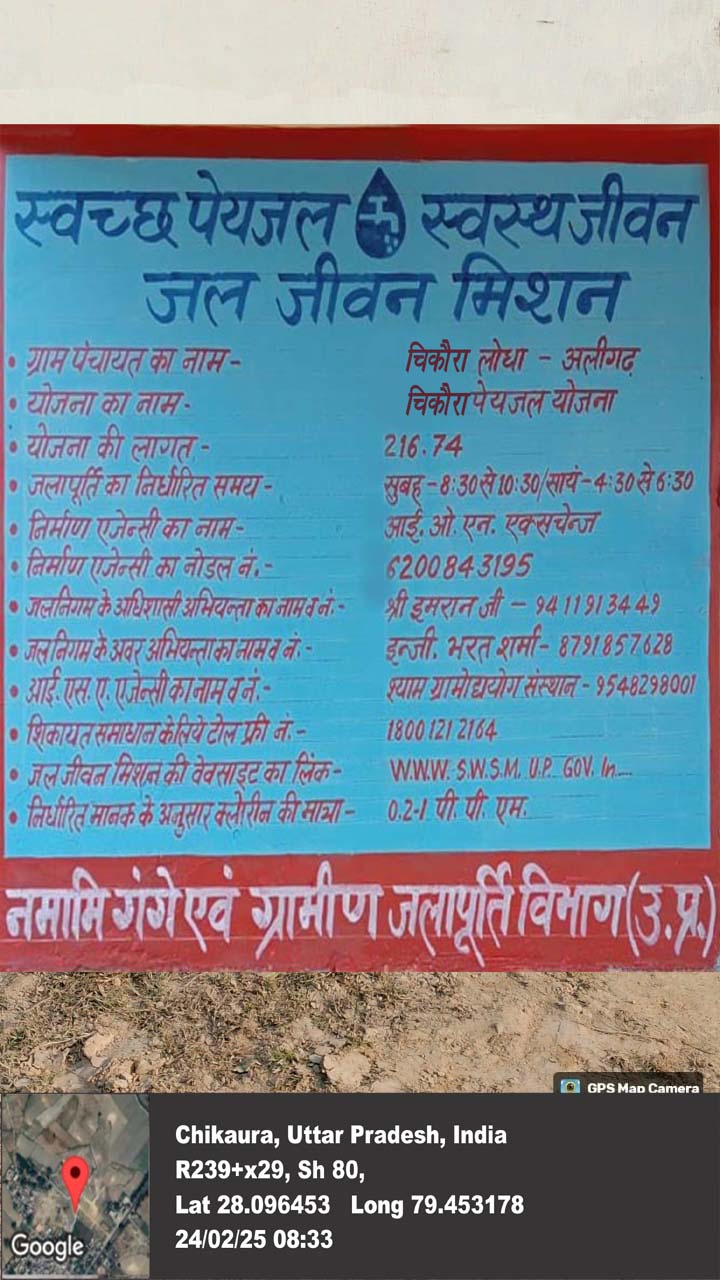 स्वच्छ पेयजल स्वस्थ जीवन
जल जीवन मिशन
• ग्राम पंचायत का नाम - चिकौरा लोधा - अलीगढ़
• योजना का नाम - चिकौरा पेयजल योजना
• योजना की लागत - 216.74
• जलापूर्ति का निर्धारित समय - सुबह - 8:30 से 10:30/सायं - 4:30 से 6:30
• निर्माण एजेन्सी का नाम - आई. ओ. एन. एक्सचेन्ज
• निर्माण एजेन्सी का नोडल नं. - 6200843195
• जलनिगम के अधिशासी अभियन्ता का नाम व नं. - श्री इमरान जी - 9411913449
• जलनिगम के अवर अभियन्ता का नाम व नं. - इन्जी. भरत शर्मा - 8791857628
• आई. एस. ए. एजेन्सी का नाम व नं. - श्याम ग्रामोद्ययोग संस्थान - 9548298001
• शिकायत समाधान के लिये टोल फ्री नं. - 1800 121 2164
• जल जीवन मिशन की वेवसाइट का लिंक - W.W.W. S.W.S.M. U.P. GOV. In....
• निर्धारित मानक के अनुसार क्लोरीन की मात्रा - 0.2-1 पी. पी. एम.
नमामि गंगे एवं ग्रामीण जलापूर्ति विभाग (उ.प्र.)
GPS Map Camera
Chikaura, Uttar Pradesh, India
R239+x29, Sh 80,
Lat 28.096453 Long 79.453178
24/02/25 08:33
Google